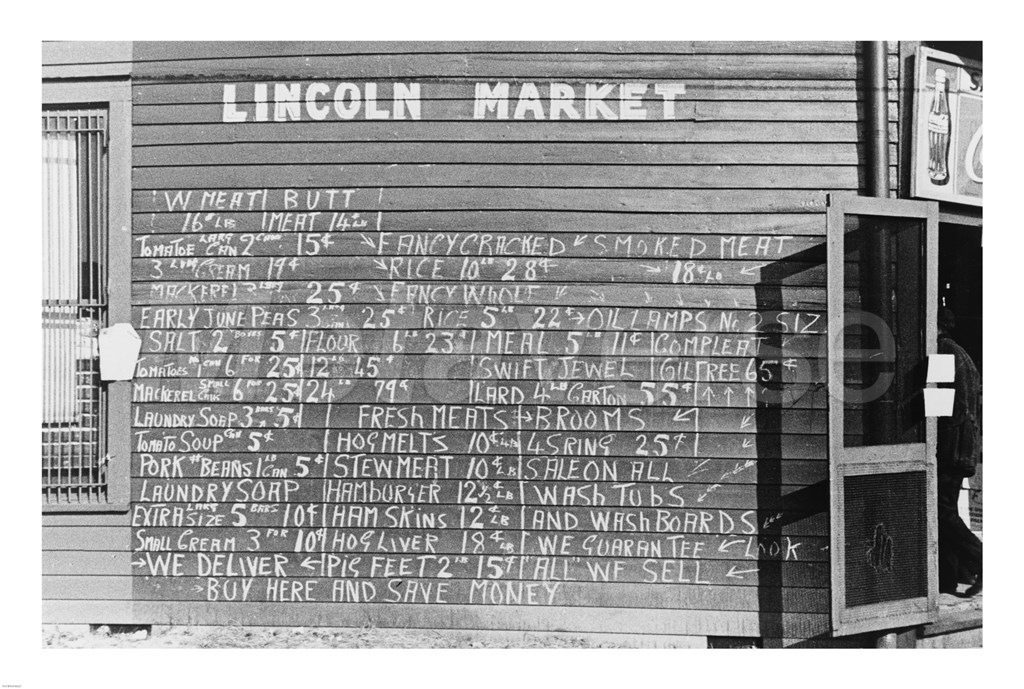 LINCOLN MARKET
W MEAT BUTT
16¢ LB MEAT 14¢ LB
TOMATOE LARG CAN 2 CANS 15¢ FANCY CRACKED SMOKED MEAT
3 CREAM 19¢ RICE 10 LB 28¢ 18¢ LB
MACKEREL 2 LARG 25¢ FANCY WHOLE
EARLY JUNE PEAS 3 25¢ RICE 5 LB 22¢ OIL LAMPS No 2 SIZ
SALT 2 BOXES 5¢ FLOUR 6 LB 23¢ MEAL 5 LB 11¢ COMPLEAT
TOMATOES 1 CAN 6 FOR 25¢ 12 LB 45¢ SWIFT JEWEL OIL FREE 65¢
MACKEREL SMALL CANS 6 FOR 25¢ 24 LB 79¢ LARD 4 LB CARTON 55¢
LAUNDRY SOAP 3 BARS 5¢ FRESH MEATS BROOMS
TOMATO SOUP CAN 5¢ HOG MELTS 10¢ LB 4 SRING 25¢
PORK & BEANS 1 LB CAN 5¢ STEW MEAT 10¢ LB SALE ON ALL
LAUNDRY SOAP HAMBURGER 12½¢ LB WASH TUBS
EXTRA LARG SIZE 5 BARS 10¢ HAM SKINS 12¢ LB AND WASH BOARDS
SMALL CREAM 3 FOR 10¢ HOG LIVER 18¢ LB WE GUARANTEE LOOK
WE DELIVER PIG FEET 2 LB 15¢ "ALL" WE SELL
BUY HERE AND SAVE MONEY